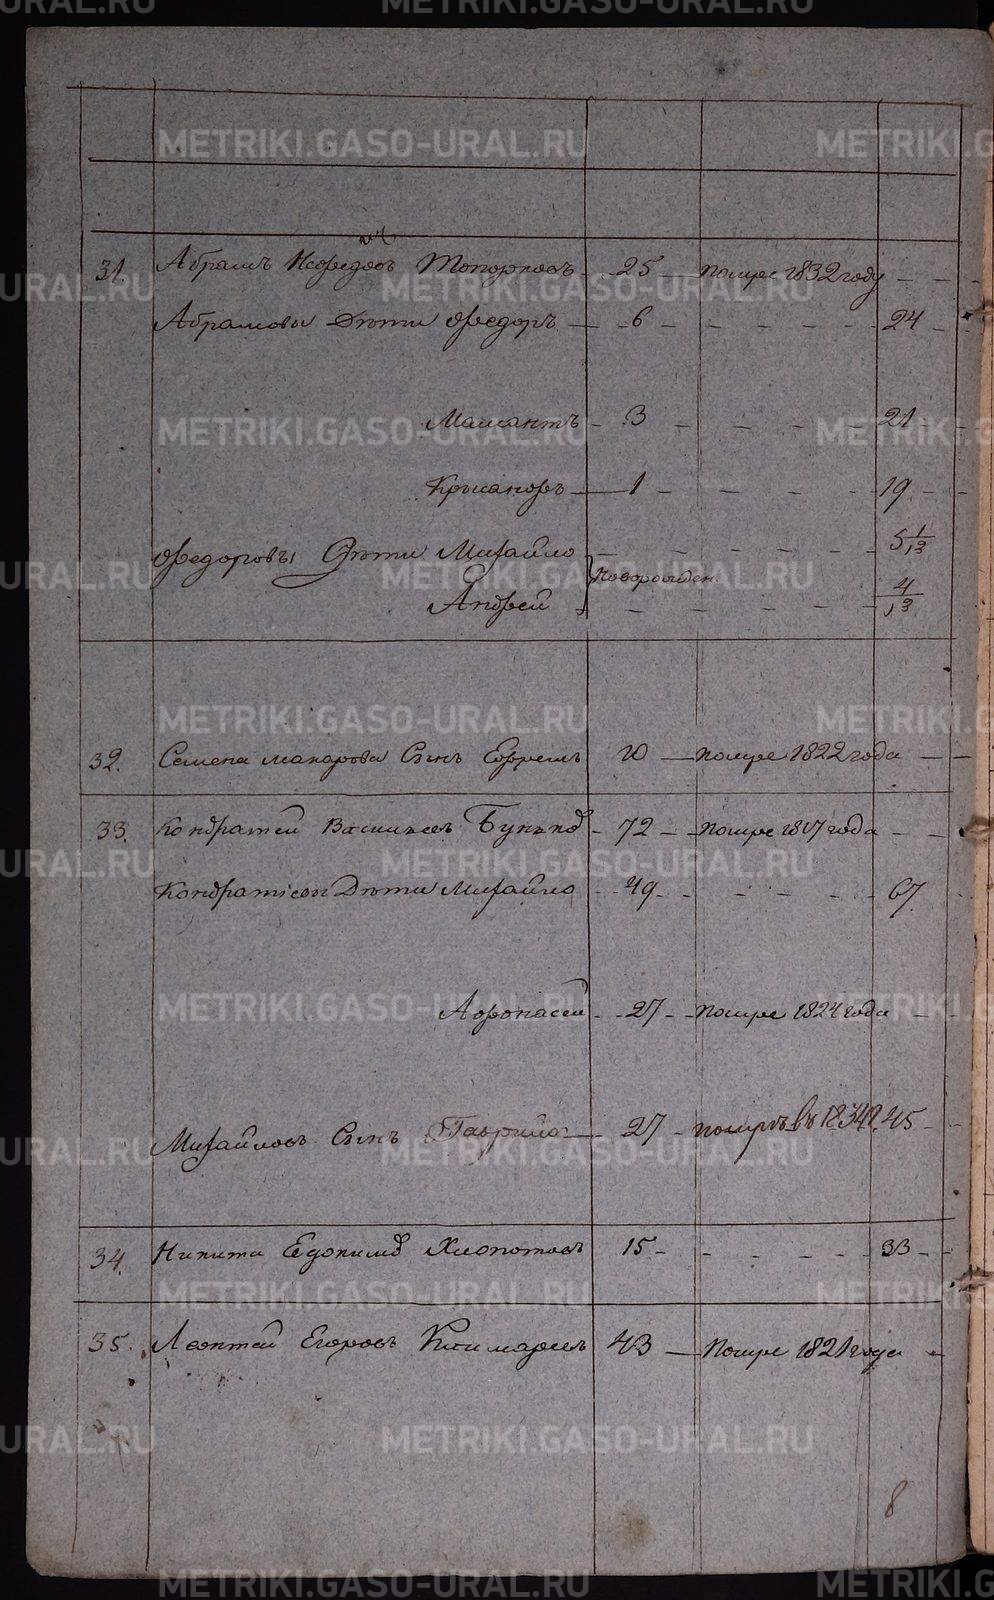 METRIKI.GASO-URAL.RU
31. Абрамъ Нефедовъ Топорковъ 25 помре 1832 году
Абрамовы Дѣти Федоръ 6 24
Мамантъ 3 21
Крисанфъ 1 19
Федоровы Дѣти Михайло 5 1/13
новорожден.
Андрей 4/13
32. Семена макарова Сынъ Ефремъ 10 помре 1822 года
33. Кондратей Васильевъ 72 помре 1817 года
Кондратьевы Дѣти Михайло 49 67
Афонасей 27 помре 1824 года
Михайловъ Сынъ Гаврило 27 помръ въ 1834 г. 45
34. Никита Хлопотовъ 15 33
35. Леонтей Егоровъ 43 Помре 1821 года
8